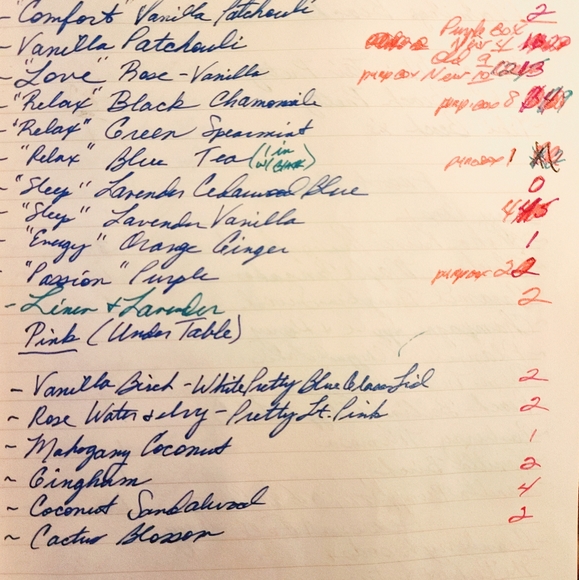 - "Comfort" Vanilla Patchouli 2
Purple box
- Vanilla Patchouli New 4
Old 9
- "Love" Rose - Vanilla purp box New 10
- "Relax" Black Chamomile purp box 8
- "Relax" Green Spearmint
- "Relax" Blue Tea (1 in w/ ) purp box 1
- "Sleep" Lavender Cedarwood Blue 0
- "Sleep" Lavender Vanilla
- "Energy" Orange Ginger 1
- "Passion" Purple purp box 2
- Linen & Lavender 2
Pink (Under Table)
- Vanilla Birch - White Pretty Blue Glass Lid 2
~ Rose Water & Ivy - Pretty Lt. Pink 2
~ Mahogany Coconut 1
~ Gingham 2
~ Coconut Sandalwood 4
~ Cactus Blossom 2